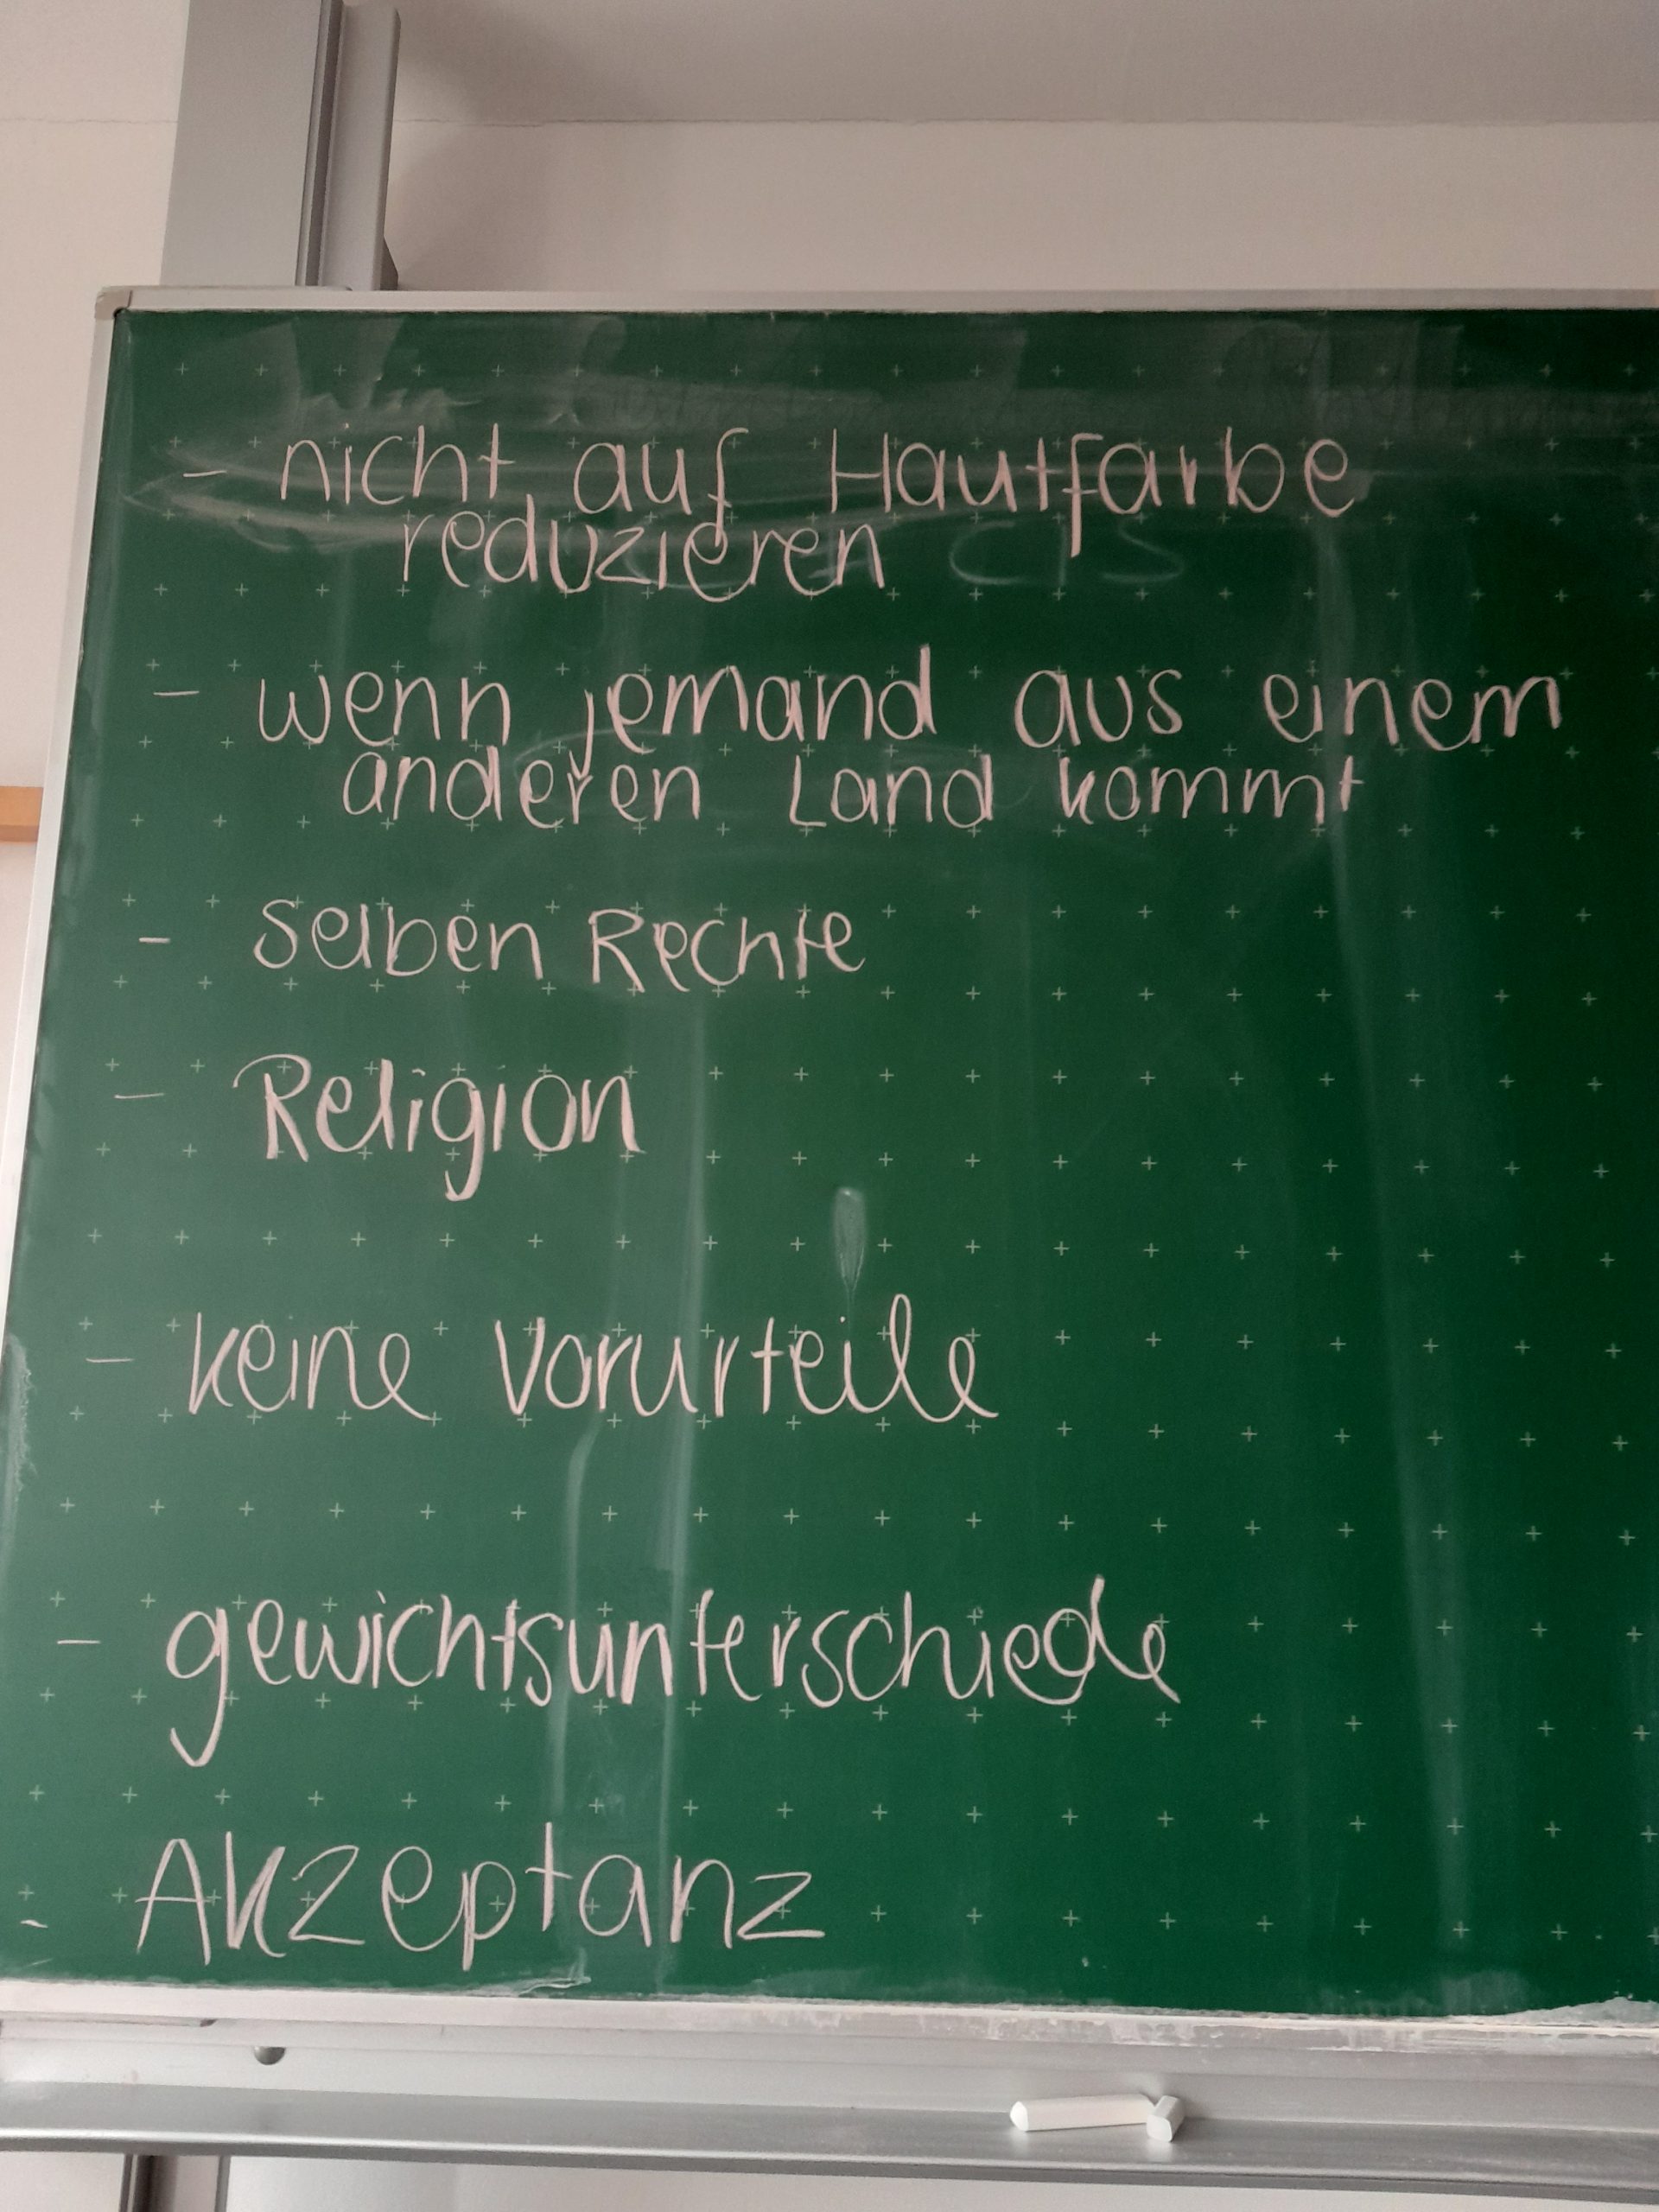 - nicht auf Hautfarbe
reduzieren
- wenn jemand aus einem
anderen Land kommt
- selben Rechte
- Religion
- keine Vorurteile
- gewichtsunterschiede
- Akzeptanz